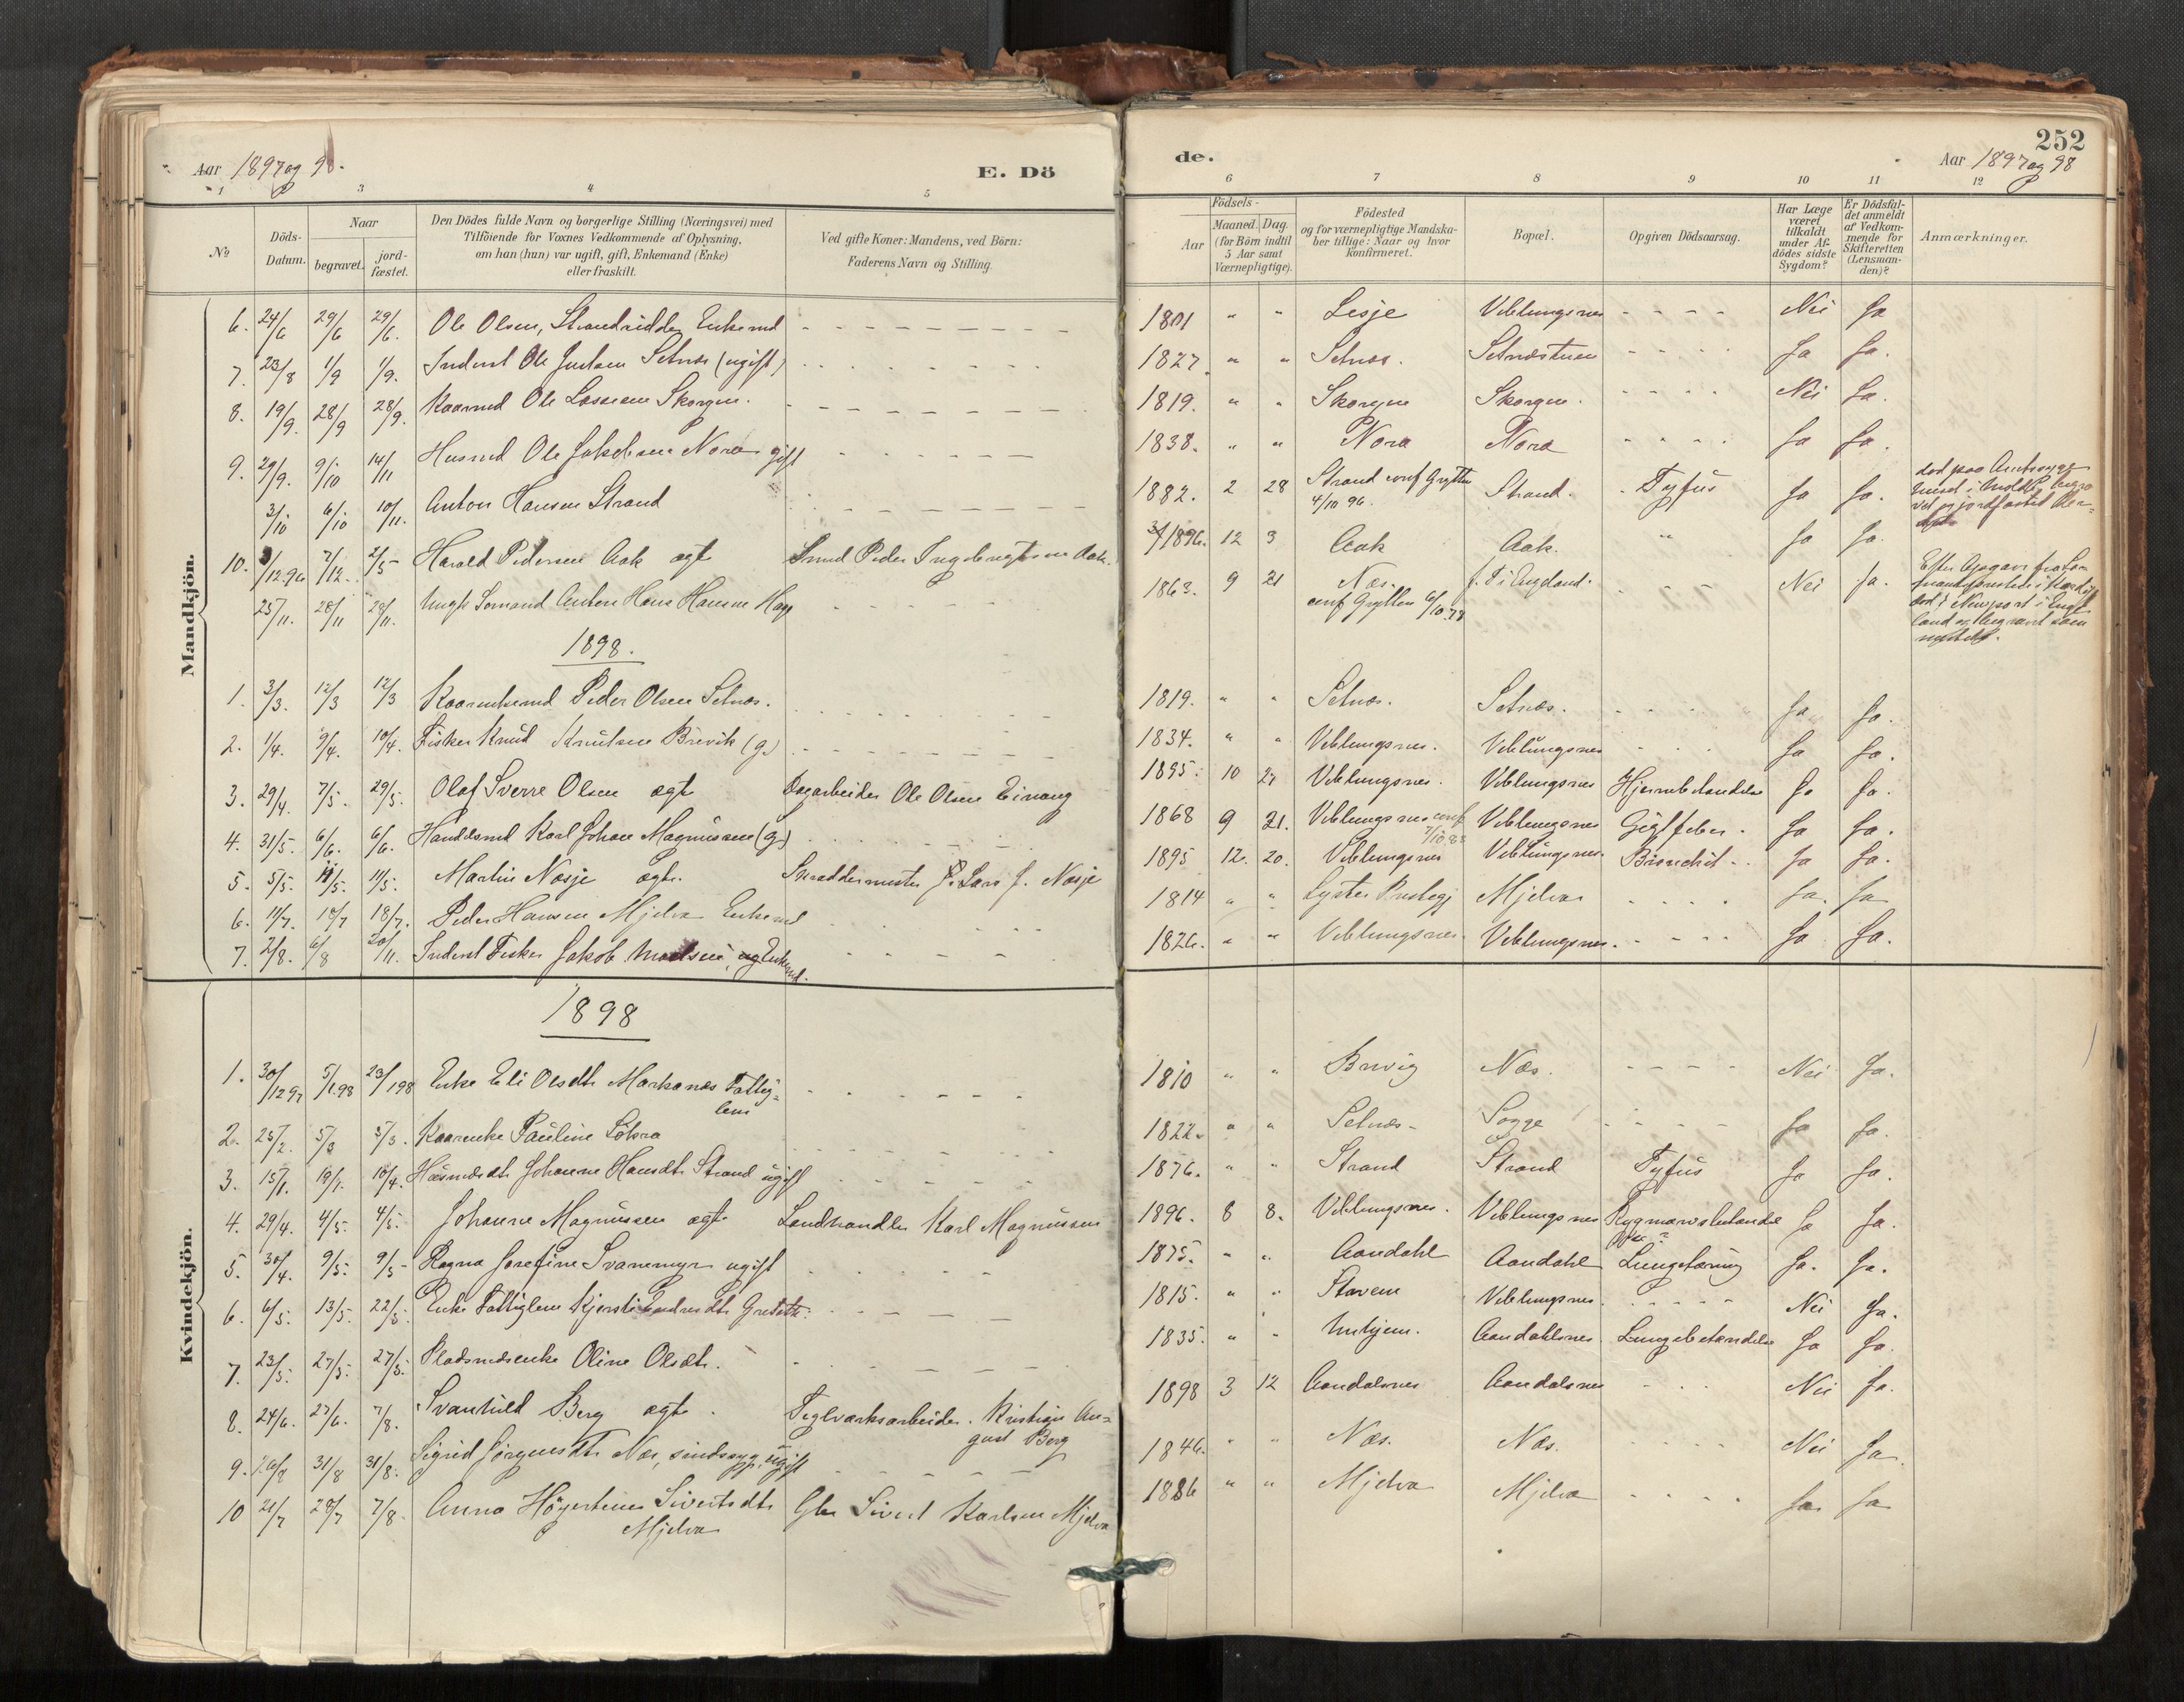 Aar 1897 og 98.
E. Dö
1 3 4 5
No
Döds-Datum.
Naar
begravet.
jord-fæstet.
Den Dödes fulde Navn og borgerlige Stilling (Næringsvei) med
Tilföiende for Voxnes Vedkommende af Oplysning,
om han (hun) var ugift, gift, Enkemand (Enke)
eller fraskilt.
Ved gifte Koner: Mandens, ved Börn:
Faderens Navn og Stilling.
Mandkjön.
6. 24/6 29/6 29/6. Ole Olsen, Enkemd
7. 23/8 1/9 1/9. Inderst Ole Setnæs (ugift)
8. 19/9. 28/9 28/9. Kaarmd Ole Lassesen Skorgen.
9. 29/9. 9/10 14/11 Husmd Ole Jakobsen Nora gift
3/10 6/10 10/11. Anton Hansen Strand
10. 7/12. 2/5 Harald Pedersen Aak ægte Smed Peder Ingebrigtsen Aak.
25/11. 28/11 28/11. Ungk Sømand Anton Hans Hansen
1898.
1. 3/3. 12/3 12/3 Kaarenkemd Peder Olsen Setnæs.
2. 1/4. 9/4. 10/4. Fisker Knud Knutsen Brevik (g.)
3. 29/4. 7/5. 29/5. Olaf Sverre Olsen ægte Dagarbeider Ole Olsen Einang
4. 31/5. 6/6. 6/6. Handelsmd Karl Johan Magnussen (g.)
5. 5/5. 11/5. 11/5. Martin Næsje ægte. Skreddermester Lars J. Næsje
6. 11/7. 18/7 18/7. Peder Hansen Mjelva Enkemd
7. 2/8. 6/8 20/11. Inderst Fisker Jakob Enkemd.
Kvindekjön.
1898
1. 30/12 97 5/1 98 23/1 98 Enke Eli Olsdtr Fattig-
lem
2. 25/2. 5/3 5/3. Kaarenke Pauline
3. 15/1. 19/1. 10/4. Husmdsdtr Johanne Hansdtr Strand ugift
4. 29/4. 4/5. 4/5. Johanne Magnussen ægte Landhandler Karl Magnussen
5. 30/4. 9/5. 9/5 Ragna Josefine Svanemyr ugift
6. 6/5. 13/5. 22/5. Enke Fattiglem Kjersti
7. 23/5. 27/5. 27/5. Pladsmdsenke Oline Olsdtr.
8. 24/6. 27/6. 7/8. Svanhild Berg ægte. Teglværksarbeider. Kristian Au-
gust Berg
9. 31/8 31/8. Sigrid Jørgensdtr Næs, sindssyg, ugift
10 21/7 28/7 7/8. Anna Sivertsdtr Gbr Sivert Karlsen Mjelva
Mjelva
de.
252
Aar 1897 og 98
6 7 8 9 10 11 12
Aar
Födsels-
Maaned. Dag.
(for Börn indtil
5 Aar samt
Værnepligtige).
Födested
og for værnepligtige Mandska-
ber tillige: Naar og hvor
konfirmeret.
Bopæl.
Opgiven Dödsaarsag.
Har Læge
været
tilkaldt
under Af-
dödes sidste
Sygdom?
Er Dödsfal-
det anmeldt
af Vedkom-
mende for
Skifteretten
(Lensman-
den)?
Anmærkninger.
1801 " " Lesje Veblungsnes Nei Ja
1827. " " Setnæs. Setnæstuen Ja Ja.
1819. " " Skorgen Skorgen. Nei Ja.
1838. " " Nora Nora Ja Ja.
1882. 2 28 Strand conf Grytten
4/10 96. Strand. Tyfus Ja Ja.
1896. 12 3 Aak Aak. " Ja Ja.
1863. 9 21 Næs.
conf Grytten 6/10 78 f. T. i England. Nei Ja.
1819. " " Setnæs. Setnæs. Ja Ja.
1834. " " Veblungsnes. Veblungsnes Ja Ja.
1895. 10 Veblungsnes. Veblungsnes Hjernebetændelse Ja Ja.
1868 9 21. Veblungsnes conf Veblungsnes Gigtfeber. Ja Ja.
1895 12. 20. Veblungsnes Veblungsnes. Ja Ja.
1814 " " Lyster Prestegj Mjelva Ja. Ja
1826. " " Veblungsnes. Veblungsnes. Ja Ja.
1810 " " Brevig Næs. Nei Ja.
1822. " " Setnæs. Sogge Ja Ja.
1876. " " Strand Strand Tyfus Ja Ja.
1896. 8 8. Veblungsnes. Veblungsnes Rygmarvsbetændelse Ja Ja.
1875. " " Aandahl Aandahl Lungetæring Ja. Ja.
1815. " " Stavem Veblungsnes. Nei Ja.
1835. " " Unhjem. Aandahlsnes Lungebetændelse Ja Ja.
1898 3 12 Aandalsnes Aandalsnes Nei Ja.
1846. " " Næs. Næs. Nei Ja.
1886 " " Mjelva Mjelva Ja Ja